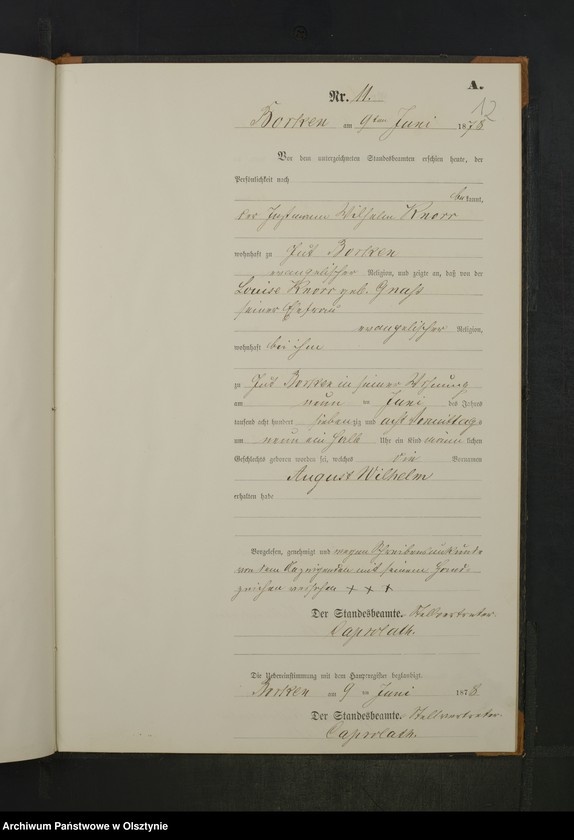 A.
Nr. 11.
12
Borken am 9ten Juni 1878
Vor dem unterzeichneten Standesbeamten erschien heute, der
Persönlichkeit nach
be kannt,
der Instmann Wilhelm Knorr
wohnhaft zu Gut Borken
evangelischer Religion, und zeigte an, daß von der
Louise Knorr geb. Gnass
seiner Ehefrau
evangelischer Religion,
wohnhaft bei ihm
zu Gut Borken in seiner Wohnung
am neun ten Juni des Jahres
tausend acht hundert siebenzig und acht Vormittags
um neun ein halb Uhr ein Kind männlichen
Geschlechts geboren worden sei, welches die Vornamen
August Wilhelm
erhalten habe
Vorgelesen, genehmigt und wegen Schreibensunkunde
von dem Anzeigenden mit seinem Hand-
zeichen versehen + + +
Der Standesbeamte. Stellvertreter.
Caprolath.
Die Uebereinstimmung mit dem Hauptregister beglaubigt.
Borken am 9 ten Juni 1878.
Der Standesbeamte. Stellvertreter.
Caprolath.
Archiwum Państwowe w Olsztynie